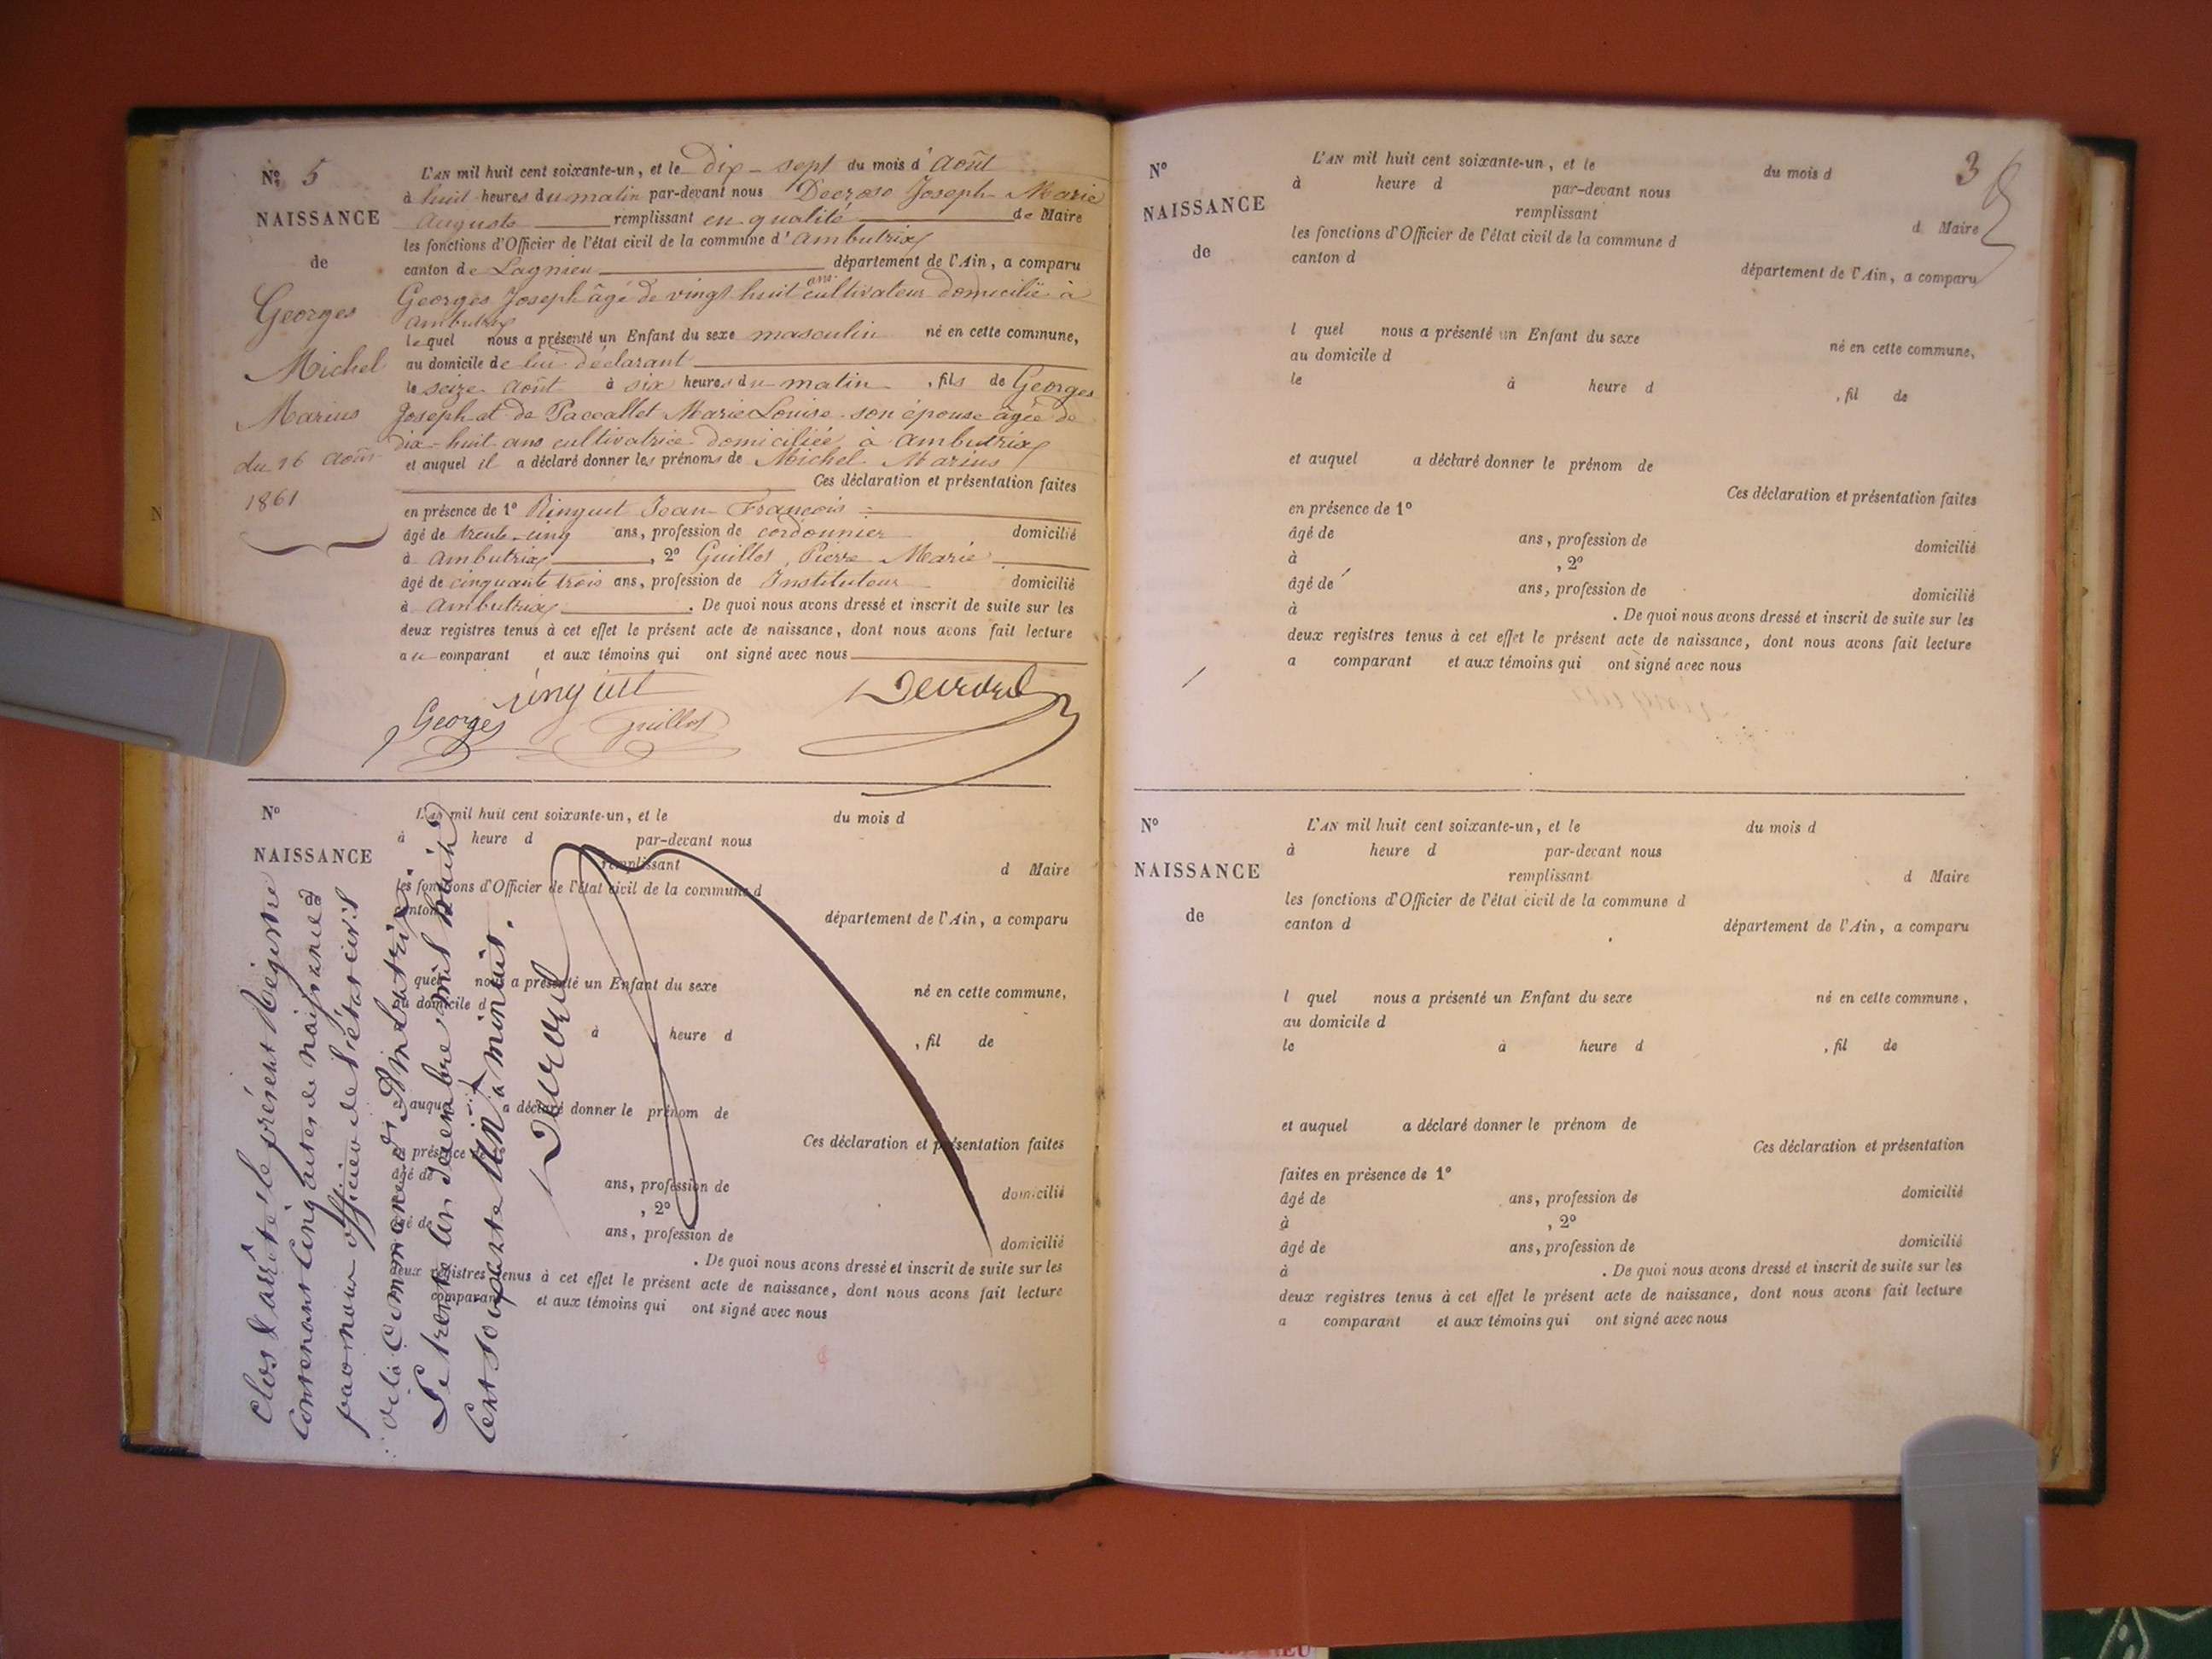 Nº 5
NAISSANCE
de
Georges
Michel
Marius
du 16 Août
1861
L'AN mil huit cent soixante-un, et le Dix-sept du mois d'Août
à huit heures du matin par-devant nous Decroso Joseph Marie
Auguste remplissant en qualité de Maire
les fonctions d'Officier de l'état civil de la commune d'Ambutrix
canton de Lagnieu département de l'Ain, a comparu
Georges Joseph âgé de vingt huit ans cultivateur domicilié à
Ambutrix
lequel nous a présenté un Enfant du sexe masculin né en cette commune,
au domicile de lui déclarant
le seize Août à six heures du matin, fils de Georges
Joseph et de Paccallet Marie Louise son épouse âgée de
dix-huit ans cultivatrice domiciliée à Ambutrix
et auquel il a déclaré donner les prénoms de Michel Marius
Ces déclaration et présentation faites
en présence de 1º Ringuet Jean-François
âgé de trente-cinq ans, profession de cordonnier domicilié
à Ambutrix, 2º Guillot, Pierre Marie
âgé de cinquante trois ans, profession de Instituteur domicilié
à Ambutrix. De quoi nous avons dressé et inscrit de suite sur les
deux registres tenus à cet effet le présent acte de naissance, dont nous avons fait lecture
au comparant et aux témoins qui ont signé avec nous
Georges
Guillot
Nº
NAISSANCE
de
L'AN mil huit cent soixante-un, et le du mois d
à heure d par-devant nous
remplissant d Maire
les fonctions d'Officier de l'état civil de la commune d
canton département de l'Ain, a comparu
quel nous a présenté un Enfant du sexe né en cette commune,
au domicile d
à heure d , fil de
et auquel a déclaré donner le prénom de
Ces déclaration et présentation faites
en présence
âgé de ans, profession de domicilié
, 2º
âgé de ans, profession de domicilié
. De quoi nous avons dressé et inscrit de suite sur les
deux registres tenus à cet effet le présent acte de naissance, dont nous avons fait lecture
comparant et aux témoins qui ont signé avec nous
Clos & arrêté le présent Régistre
Contenant cinq actes de naissances
par nous officier de l'état civil
de la Commune d'Ambutrix.
Le trente un Decembre mil huit
Cent soixante un à minuit.
3
Nº
NAISSANCE
de
L'AN mil huit cent soixante-un, et le du mois d
à heure d par-devant nous
remplissant d Maire
les fonctions d'Officier de l'état civil de la commune d
canton d département de l'Ain, a comparu
l quel nous a présenté un Enfant du sexe né en cette commune,
au domicile d
le à heure d , fil de
et auquel a déclaré donner le prénom de
Ces déclaration et présentation faites
en présence de 1º
âgé de ans, profession de domicilié
à , 2º
âgé de ans, profession de domicilié
à . De quoi nous avons dressé et inscrit de suite sur les
deux registres tenus à cet effet le présent acte de naissance, dont nous avons fait lecture
a comparant et aux témoins qui ont signé avec nous
Nº
NAISSANCE
de
L'AN mil huit cent soixante-un, et le du mois d
à heure d par-devant nous
remplissant d Maire
les fonctions d'Officier de l'état civil de la commune d
canton d département de l'Ain, a comparu
l quel nous a présenté un Enfant du sexe né en cette commune,
au domicile d
le à heure d , fil de
et auquel a déclaré donner le prénom de
Ces déclaration et présentation
faites en présence de 1º
âgé de ans, profession de domicilié
à , 2º
âgé de ans, profession de domicilié
à . De quoi nous avons dressé et inscrit de suite sur les
deux registres tenus à cet effet le présent acte de naissance, dont nous avons fait lecture
a comparant et aux témoins qui ont signé avec nous